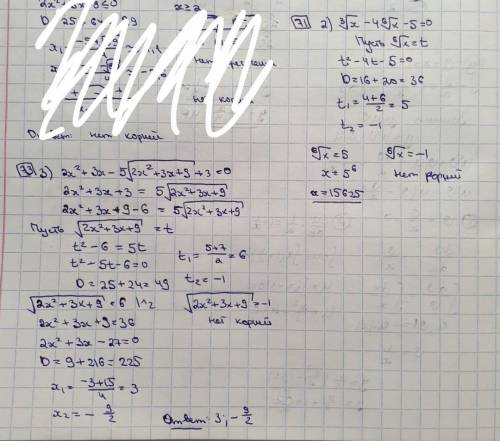 x≥2
Ответ: нет корней
71 2) ∛x - 4⁶√x - 5 = 0
Пусть ⁶√x = t
t² - 4t - 5 = 0
D = 16 + 20 = 36
t₁ = (4+6)/2 = 5
t₂ = -1
⁶√x = 5 ⁶√x = -1
x = 5⁶ нет корней
x = 15625
73 3) 2x² + 3x - 5√(2x² + 3x + 9) + 3 = 0
2x² + 3x + 3 = 5√(2x² + 3x + 9)
2x² + 3x + 9 - 6 = 5√(2x² + 3x + 9)
Пусть √(2x² + 3x + 9) = t
t² - 6 = 5t
t² - 5t - 6 = 0
D = 25 + 24 = 49
t₁ = (5+7)/2 = 6
t₂ = -1
√(2x² + 3x + 9) = 6 |^2 √(2x² + 3x + 9) = -1
2x² + 3x + 9 = 36 нет корней
2x² + 3x - 27 = 0
D = 9 + 216 = 225
x₁ = (-3+15)/4 = 3
x₂ = - 9/2
Ответ: 3; - 9/2